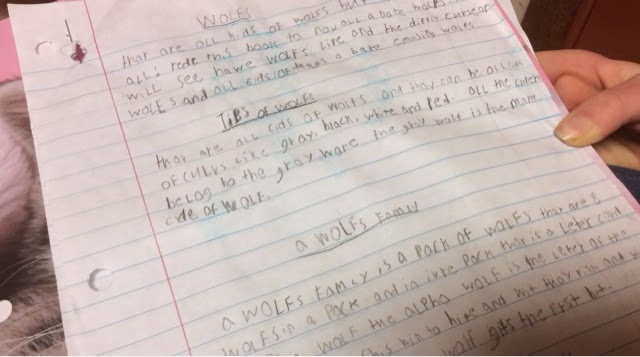 WOLFS
thar are all kids of wolfs but
all! rede this book to now all a bate wolfs
will see hawe WOLFS live and the difrin
WOLFS and all kids of things a bate emasing wolfs
TiPS of WOLFS
thar are all cids of wolfs and thay can be all
of culurs like gray, black, white and red. all the
belog to the gray ware the gray wolf is the mane
cide of WOLF.
a WOLFS Family
a WOLFS Family is a Pack of WOLFS thar are 8
WOLFS in a Pack and in ivre Pack thar is a leter
WOLF the alpha WOLF is the leter of the
to hide and thay run and
wolf gits the first bit.